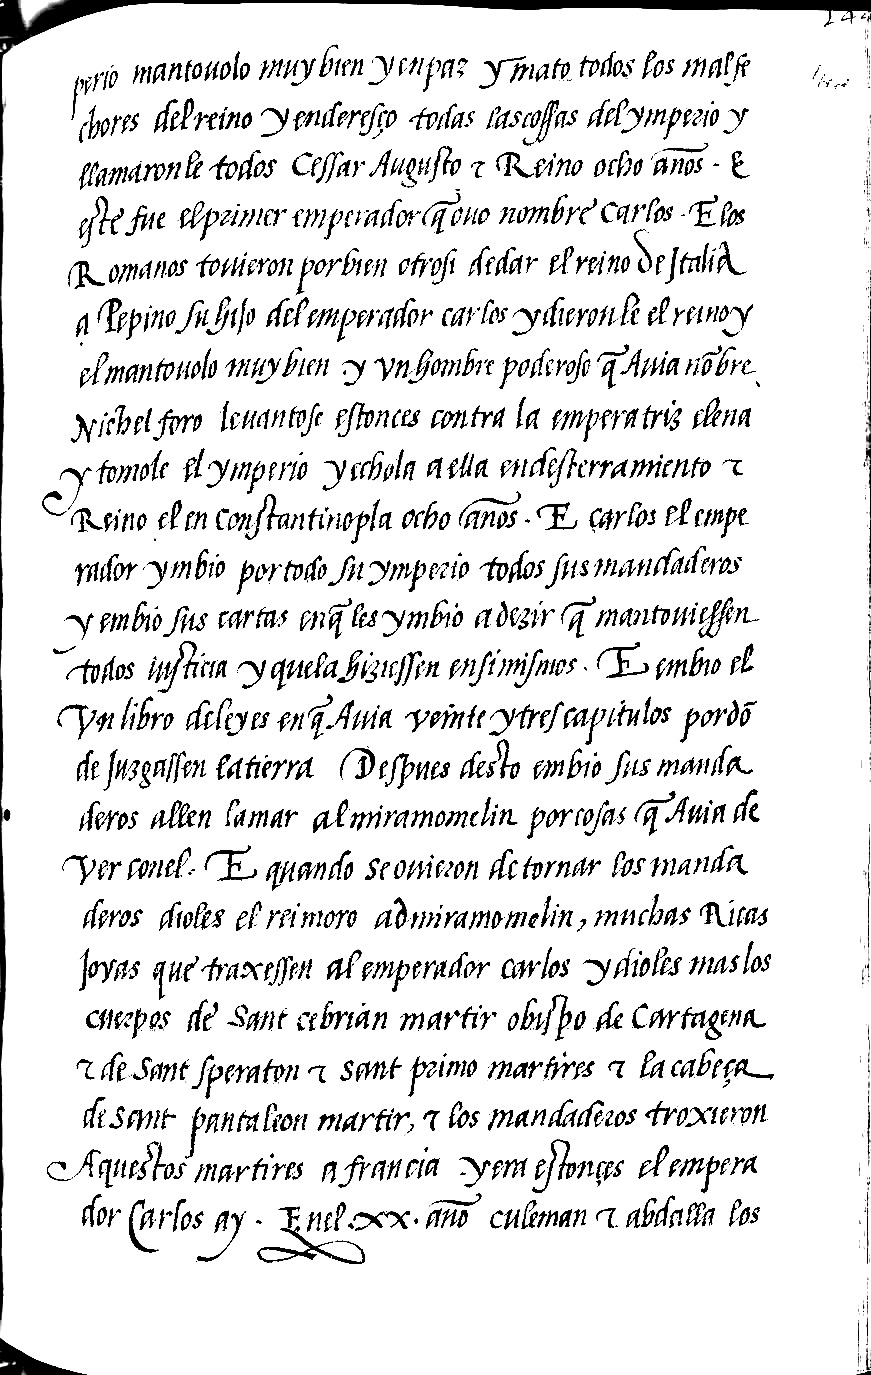 144
perio mantouolo muy bien y en paz y mato todos los malfe
chores del reino y enderesço todas las cossas del ymperio y
llamaron le todos Cessar Augusto τ Reino ocho años · E
este fue el primer emperador q̃ ouo nombre Carlos · E los
Romanos touieron por bien otrosi de dar el reino de Italia
a Pepino su hijo del emperador carlos y dieron le el reino y
el mantouolo muy bien y vn hombre poderoso q̃ Auia nõbre
Nichel foro leuantose estonces contra la emperatriz elena
y tomole el ymperio y echola a ella en desterramiento τ
Reino el en constantinopla ocho años · E carlos el empe
rador ymbio por todo su ymperio todos sus mandaderos
y embio sus cartas en q̃ les ymbio a dezir q̃ mantouiessen
todos iusticia y que la hiziessen en si mismos · E embio el
vn libro de leyes en q̃ Auia veinte y tres capitulos por dõ
de juzgassen la tierra Despues desto embio sus manda
deros allen la mar al miramomelin por cosas q̃ Auia de
ver con el · E quando se ouieron de tornar los manda
deros dioles el rei moro admiramomelin, muchas Ricas
joyas que traxessen al emperador carlos y dioles mas los
cuerpos de Sant cebrian martir obispo de Cartagena
τ de Sant speraton τ sant primo martires τ la cabeça
de sant pantaleon martir, τ los mandaderos troxieron
Aquestos martires a francia y era estonçes el empera
dor Carlos ay · En el · xx · año culeman τ abdalla los